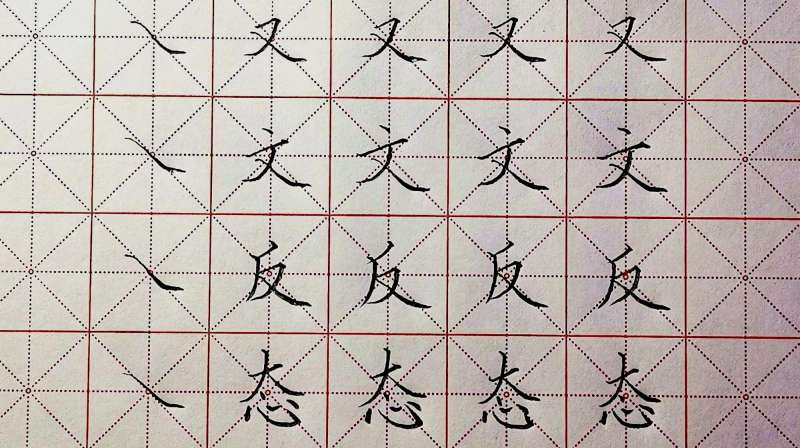 ㇏又又又又
㇏文文文文
㇏反反反反
㇏态态态态